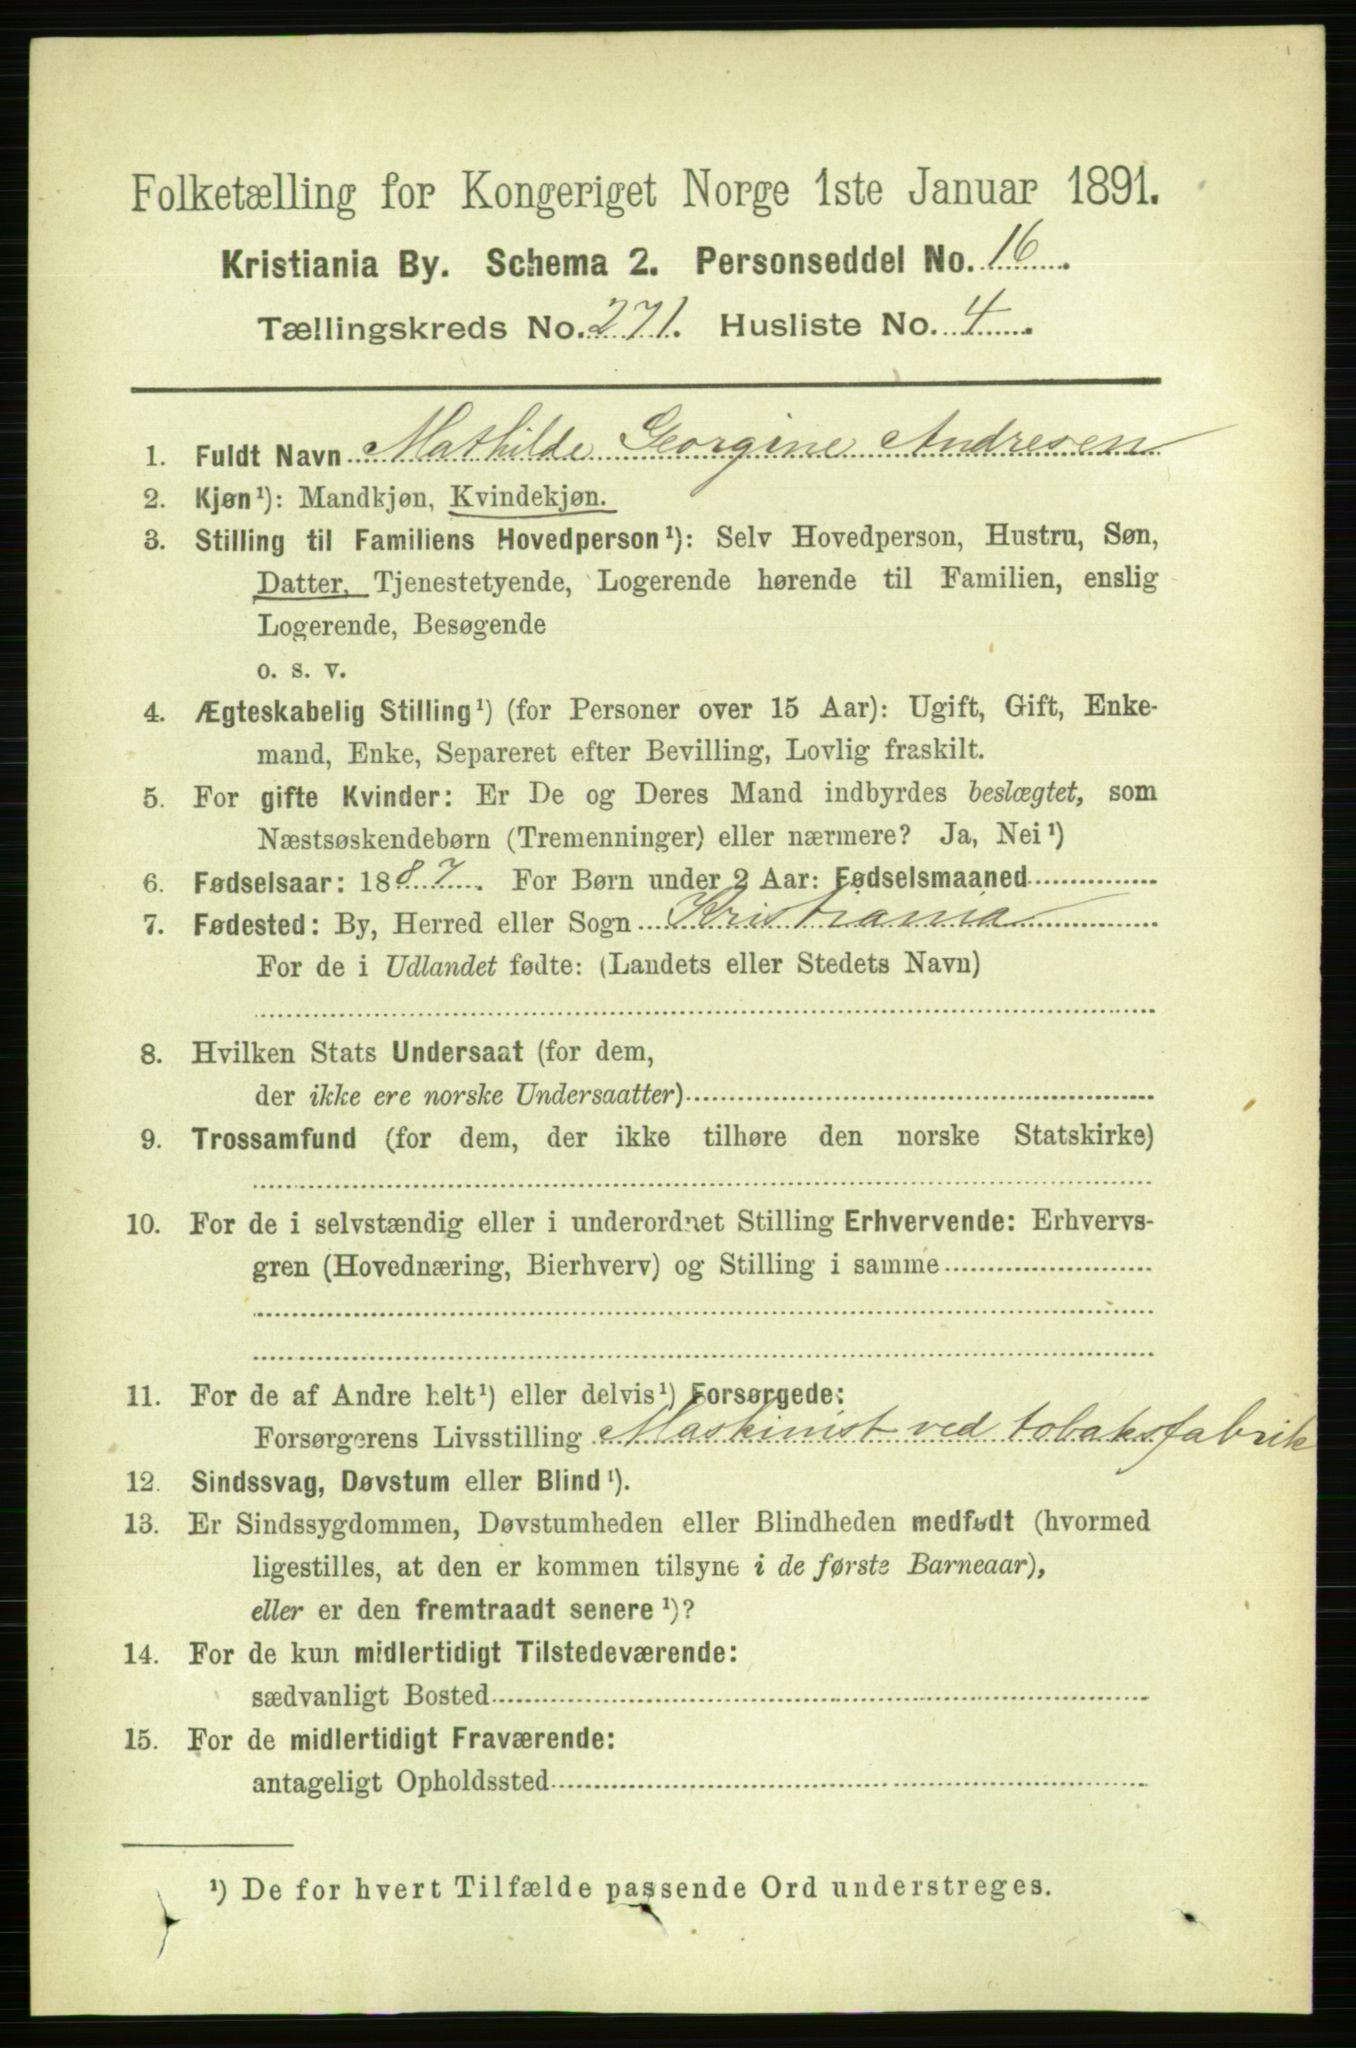 Folketælling for Kongeriget Norge 1ste Januar 1891.
Kristiania By. Schema 2. Personseddel No. 16.
Tællingskreds No. 271. Husliste No. 4.
1. Fuldt Navn Mathilde Georgine Andresen
2. Kjøn¹): Mandkjøn, Kvindekjøn.
3. Stilling til Familiens Hovedperson¹): Selv Hovedperson, Hustru, Søn,
Datter, Tjenestetyende, Logerende hørende til Familien, enslig
Logerende, Besøgende
o. s. v.
4. Ægteskabelig Stilling¹) (for Personer over 15 Aar): Ugift, Gift, Enke-
mand, Enke, Separeret efter Bevilling, Lovlig fraskilt.
5. For gifte Kvinder: Er De og Deres Mand indbyrdes beslægtet, som
Næstsøskendebørn (Tremenninger) eller nærmere? Ja, Nei¹)
6. Fødselsaar: 1887. For Børn under 2 Aar: Fødselsmaaned
7. Fødested: By, Herred eller Sogn Kristiania
For de i Udlandet fødte: (Landets eller Stedets Navn)
8. Hvilken Stats Undersaat (for dem,
der ikke ere norske Undersaatter)
9. Trossamfund (for dem, der ikke tilhøre den norske Statskirke)
10. For de i selvstændig eller i underordnet Stilling Erhvervende: Erhvervs-
gren (Hovednæring, Bierhverv) og Stilling i samme
11. For de af Andre helt¹) eller delvis¹) Forsørgede:
Forsørgerens Livsstilling Maskinist ved tobaksfabrik
12. Sindssvag, Døvstum eller Blind¹).
13. Er Sindssygdommen, Døvstumheden eller Blindheden medfødt (hvormed
ligestilles, at den er kommen tilsyne i de første Barneaar),
eller er den fremtraadt senere¹)?
14. For de kun midlertidigt Tilstedeværende:
sædvanligt Bosted
15. For de midlertidigt Fraværende:
antageligt Opholdssted
¹) De for hvert Tilfælde passende Ord understreges.